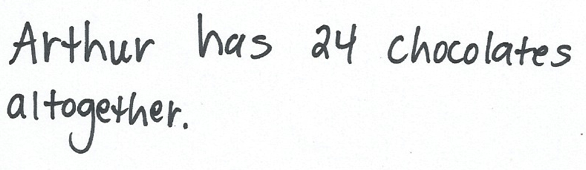 Arthur has 24 chocolates
altogether.